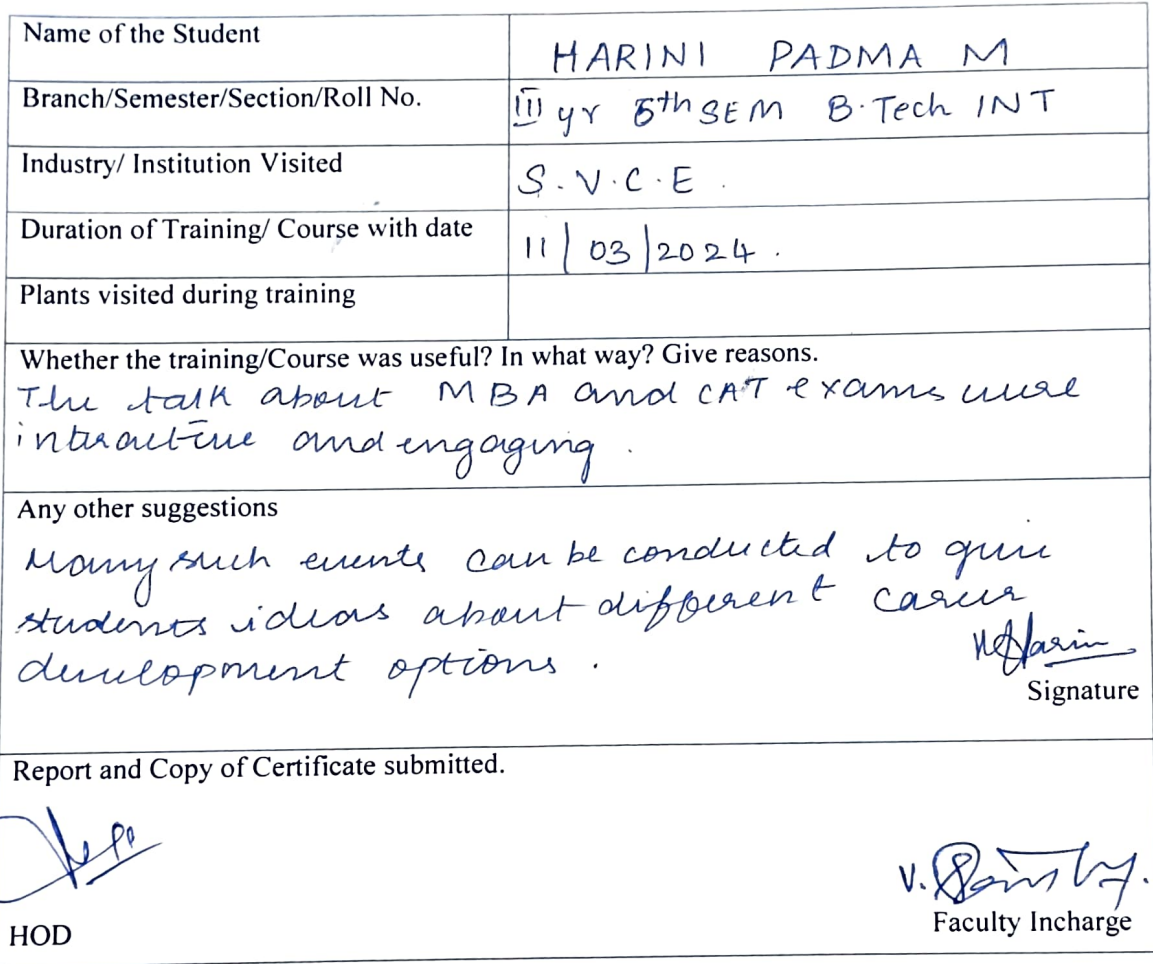 Name of the Student HARINI PADMA M
Branch/Semester/Section/Roll No. III yr 5th SEM B.Tech INT
Industry/ Institution Visited S.V.C.E.
Duration of Training/ Course with date 11/03/2024.
Plants visited during training
Whether the training/Course was useful? In what way? Give reasons.
The talk about MBA and CAT exams were
interactive and engaging.
Any other suggestions
Many such events can be conducted to give
students ideas about different career
development options.
Signature
Report and Copy of Certificate submitted.
V.
HOD
Faculty Incharge